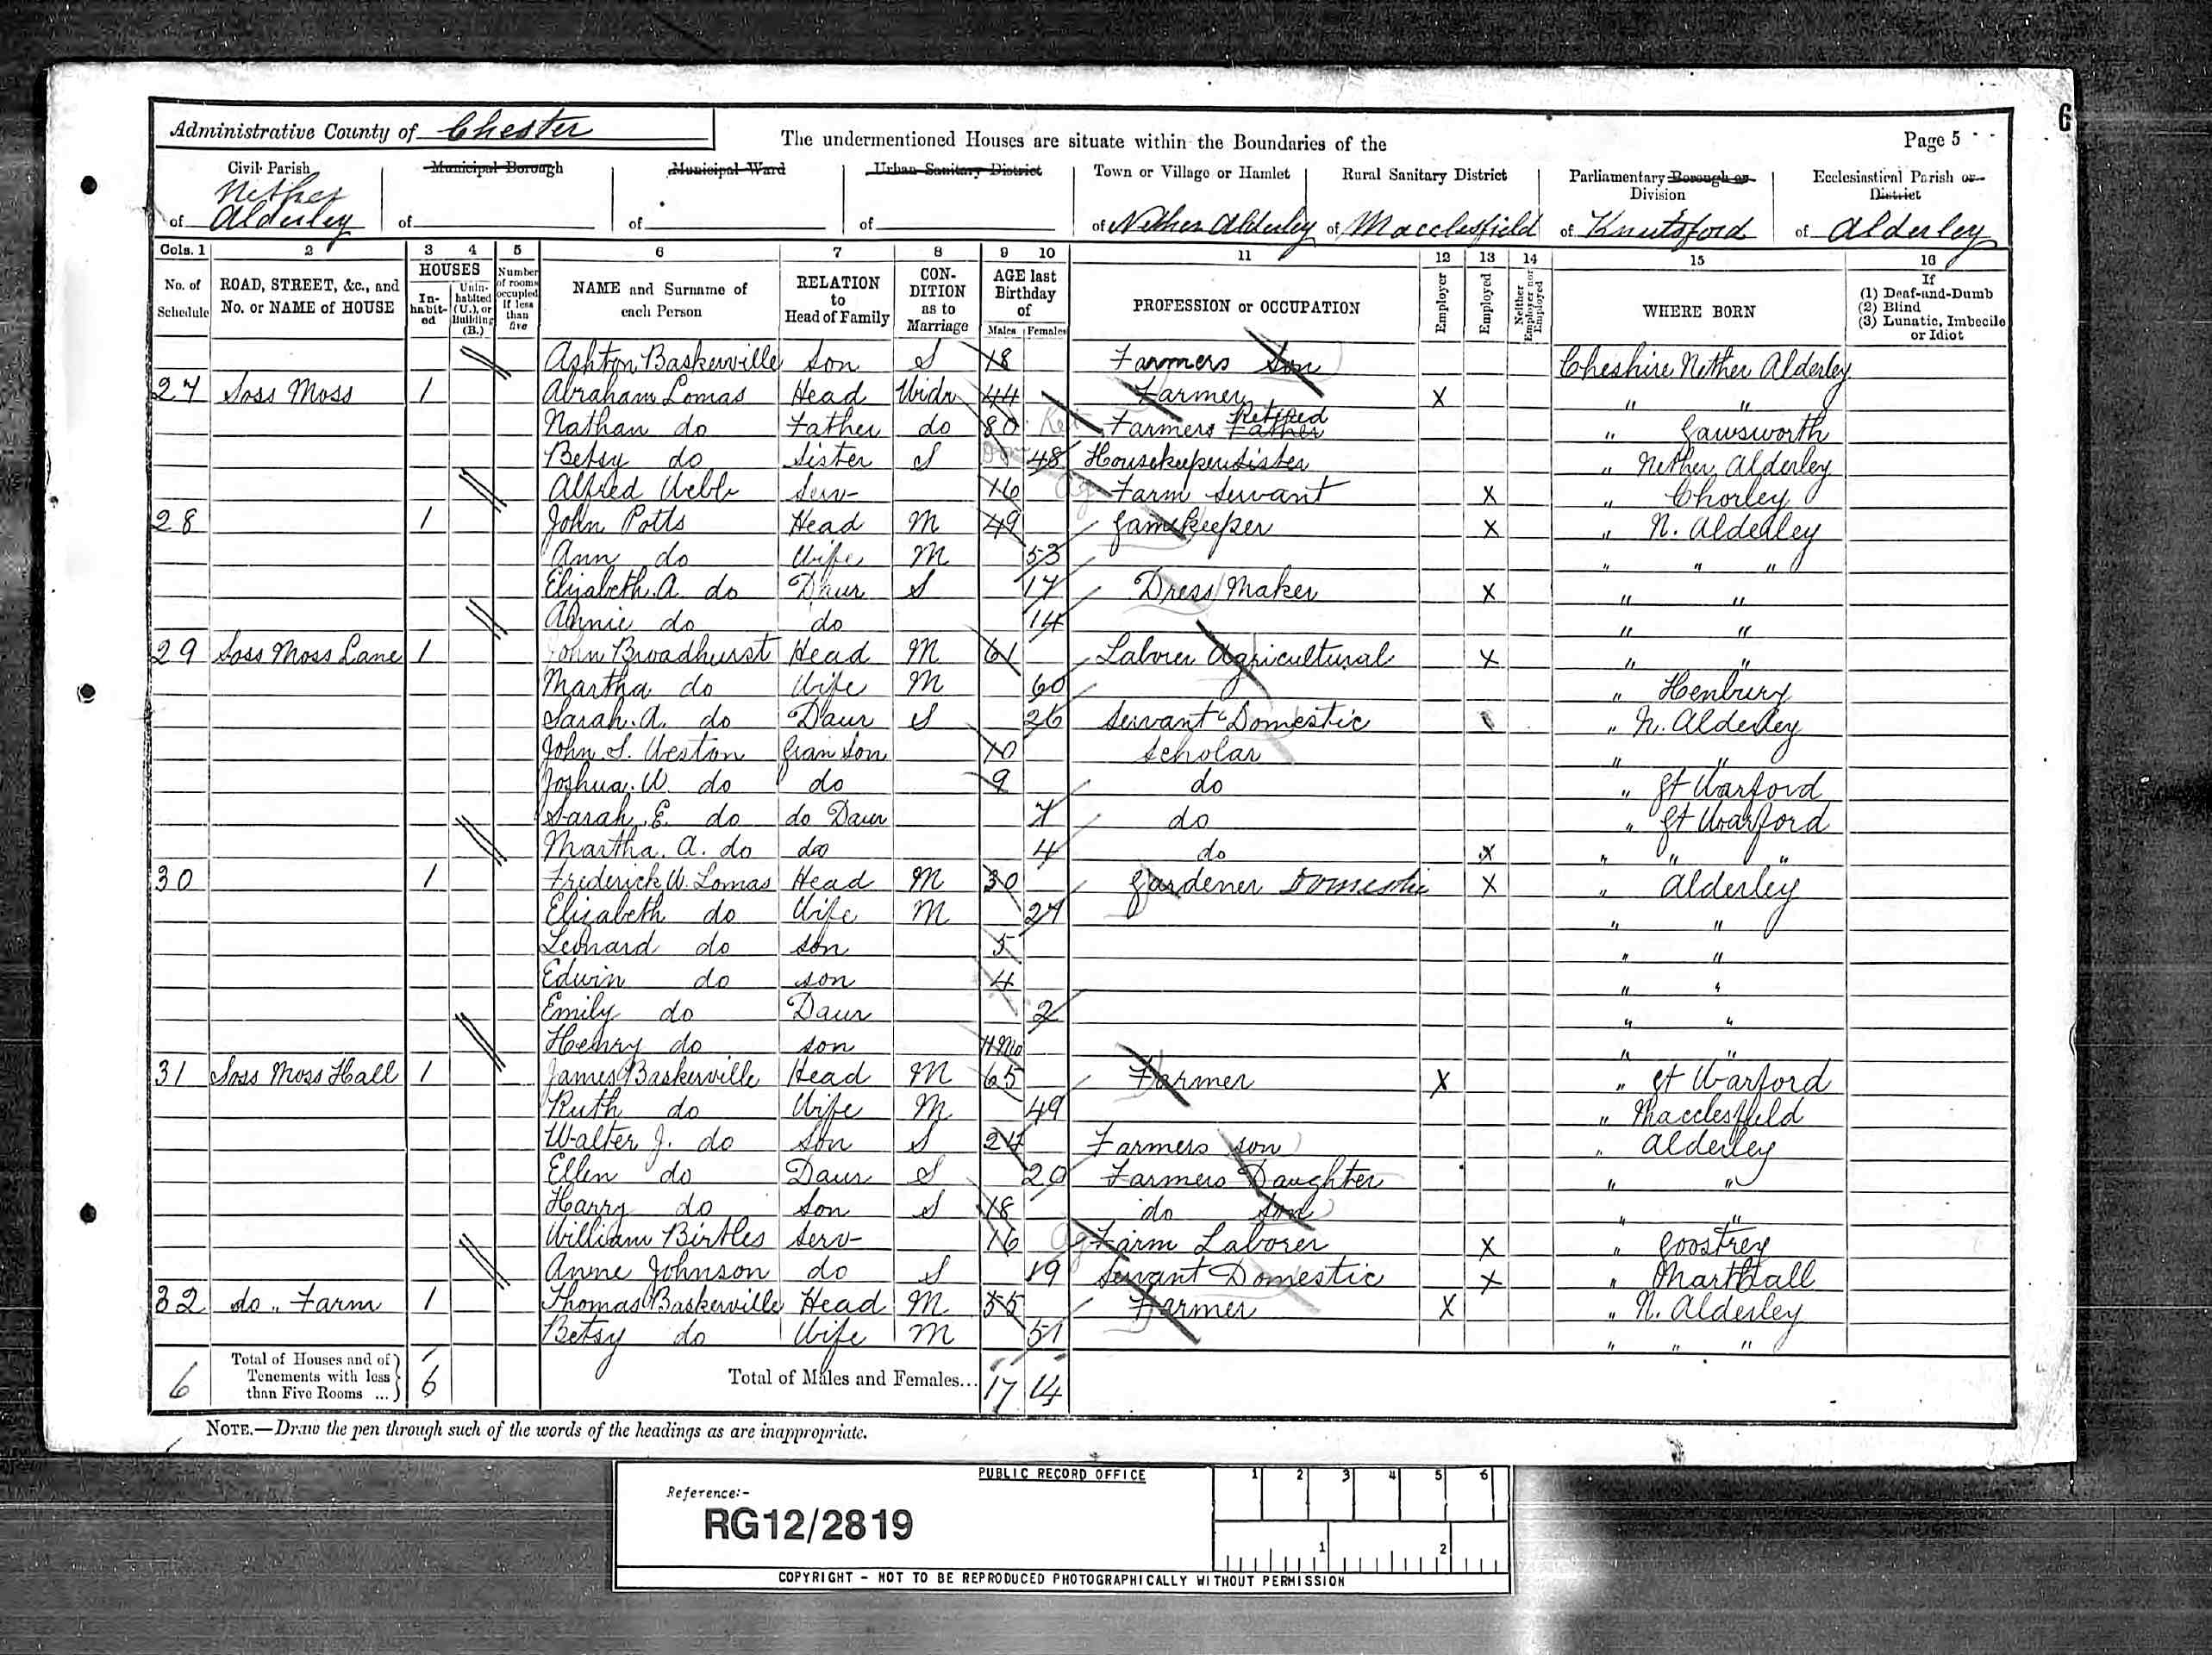 6
Administrative County of Chester
The undermentioned Houses are situate within the Boundaries of the
Page 5
Civil Parish of Nether Alderley
Municipal Borough of
Municipal Ward of
Urban Sanitary District of
Town or Village or Hamlet of Nether Alderley
Rural Sanitary District of Macclesfield
Parliamentary Borough or Division of Knutsford
Ecclesiastical Parish or District of Alderley
Cols. 1 2 3 4 5 6 7 8 9 10 11 12 13 14 15 16
No. of Schedule
ROAD, STREET, &c., and No. or NAME of HOUSE
HOUSES
In-habit-ed
Unin-habited (U.), or Building (B.)
Number of rooms occupied if less than five
NAME and Surname of each Person
RELATION to Head of Family
CON-DITION as to Marriage
AGE last Birthday of
Males Females
PROFESSION or OCCUPATION
Employer
Employed
Neither Employer nor Employed
WHERE BORN
If (1) Deaf-and-Dumb (2) Blind (3) Lunatic, Imbecile or Idiot
Ashton Baskerville Son S 18 Farmers Son Cheshire Nether Alderley
27 Soss Moss 1 Abraham Lomas Head Widr 44 Farmer X " "
Nathan do Father do 80 Ret Farmers Father Retired " Gawsworth
Betsy do Sister S 48 Housekeeper Sister " Nether Alderley
Alfred Webb Serv- 16 Ag Farm Servant X " Chorley
28 1 John Potts Head M 49 Gamekeeper X " N. Alderley
Ann do Wife M 53 " " "
Elizabeth A. do Daur S 17 Dress Maker X " "
Annie do do 14 " "
29 Soss Moss Lane 1 John Broadhurst Head M 61 Laborer Agricultural X " "
Martha do Wife M 60 " Henbury
Sarah. A. do Daur S 26 Servant Domestic " N. Alderley
John. S. Weston Gran Son 10 Scholar " "
Joshua. W. do do 9 do " Gt Warford
Sarah. E. do do Daur 7 do " Gt Warford
Martha. A. do do 4 do X " " "
30 1 Frederick W. Lomas Head M 30 Gardener Domestic X " Alderley
Elizabeth do Wife M 27 " "
Leonard do Son 5 " "
Edwin do Son 4 " "
Emily do Daur 2 " "
Henry do Son 4 Mo " "
31 Soss Moss Hall 1 James Baskerville Head M 65 Farmer X " Gt Warford
Ruth do Wife M 49 " Macclesfield
Walter J. do Son S 24 Farmers son " Alderley
Ellen do Daur S 20 Farmers Daughter " "
Harry do Son S 18 do Son " "
William Birtles Serv- 16 Ag Farm Laborer X " Goostrey
Anne Johnson do S 19 Servant Domestic X " Marthall
32 do " Farm 1 Thomas Baskerville Head M 55 Farmer X " N. Alderley
Betsy do Wife M 51 " " "
6 Total of Houses and of Tenements with less than Five Rooms ... 6 Total of Males and Females... 17 14
NOTE.—Draw the pen through such of the words of the headings as are inappropriate.
PUBLIC RECORD OFFICE
1 2 3 4 5 6
Reference:-
RG12/2819
1 2
COPYRIGHT - NOT TO BE REPRODUCED PHOTOGRAPHICALLY WITHOUT PERMISSION